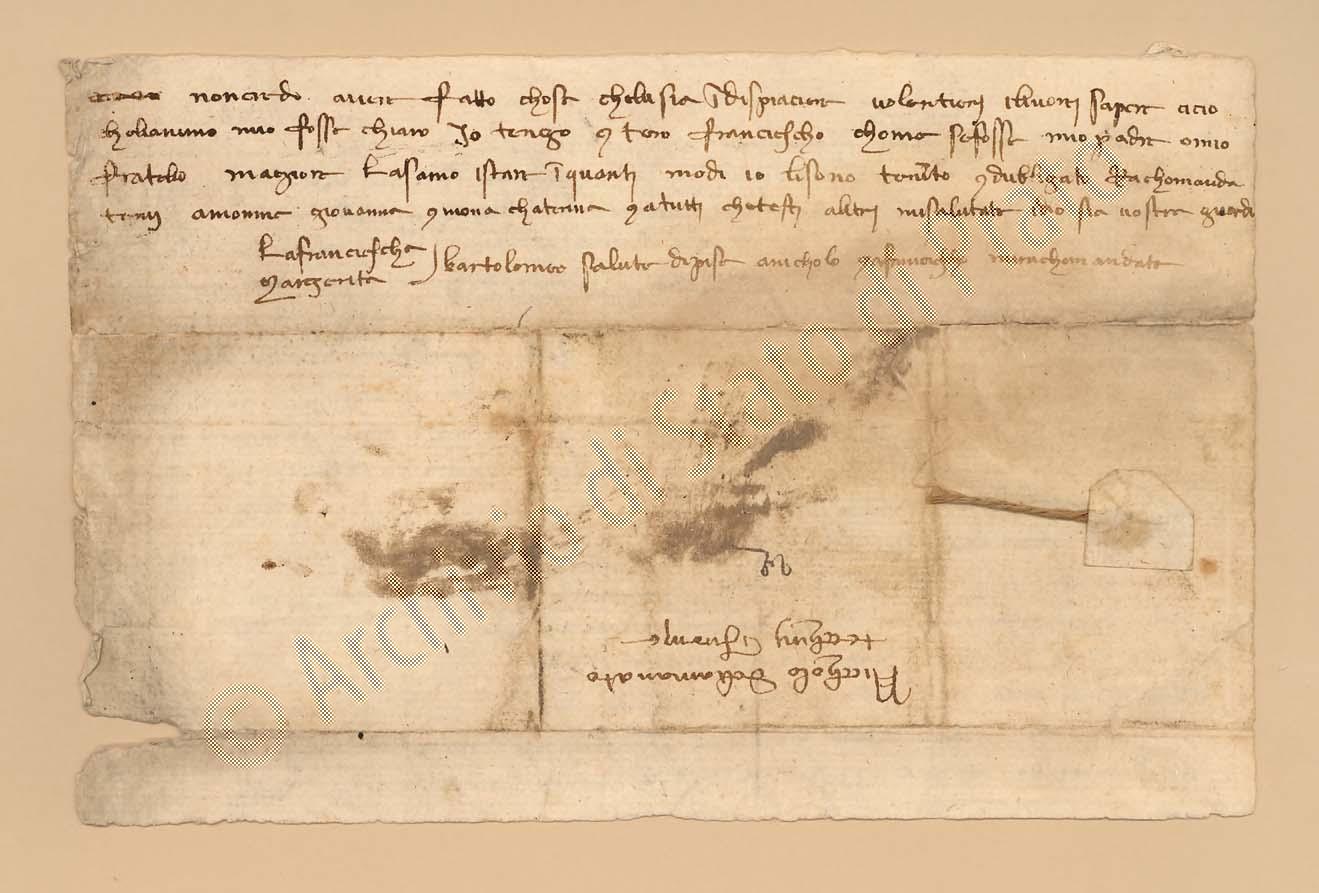 non credo avere fatto chose chelisia ĩdispiaciere volentieri iluorei sapere acio
chelanimo mio fosse chiaro Io tengo e tero franciescho chome sefosse mio padre omio
fratelo magiore Lasamo istare ĩquanti modi io lisono tenuto edubligato Rachomanda
temi amonna giovanna emona chaterina eatutti chetesti altri misalutate idio sia vostra guardi
Lafranciescha
Margerita
bartolomeo saluta dipisa anicholo efranciescho rachomandate
Niccholo dellammonato
tecchini in firenze
© Archivio di Stato di Prato